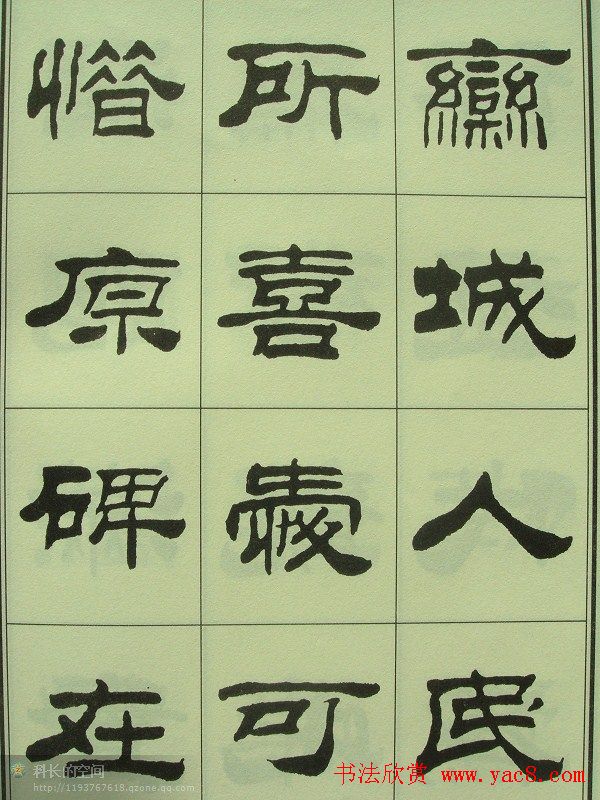 欒城人民
所喜歲可
惜原碑在
科长的空间
http://1193767618.qzone.qq.com
书法欣赏 www.yac8.com